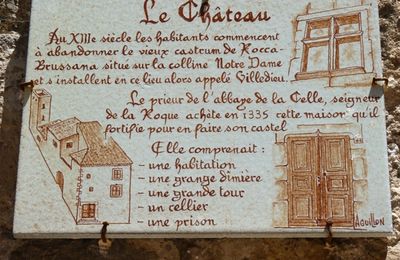 Le Château
Au XIIIe siècle les habitants commencent
à abandonner le vieux castrum de Rocca-
Brussana situé sur la colline Notre Dame
et s'installent en ce lieu alors appelé Gilledieu.
Le prieur de l'abbaye de la Celle, seigneur
de la Roque achète en 1335 cette maison qu'il
fortifie pour en faire son castel
Elle comprenait :
- une habitation
- une grange dîmière
- une grande tour
- un cellier
- une prison
AGUILLON